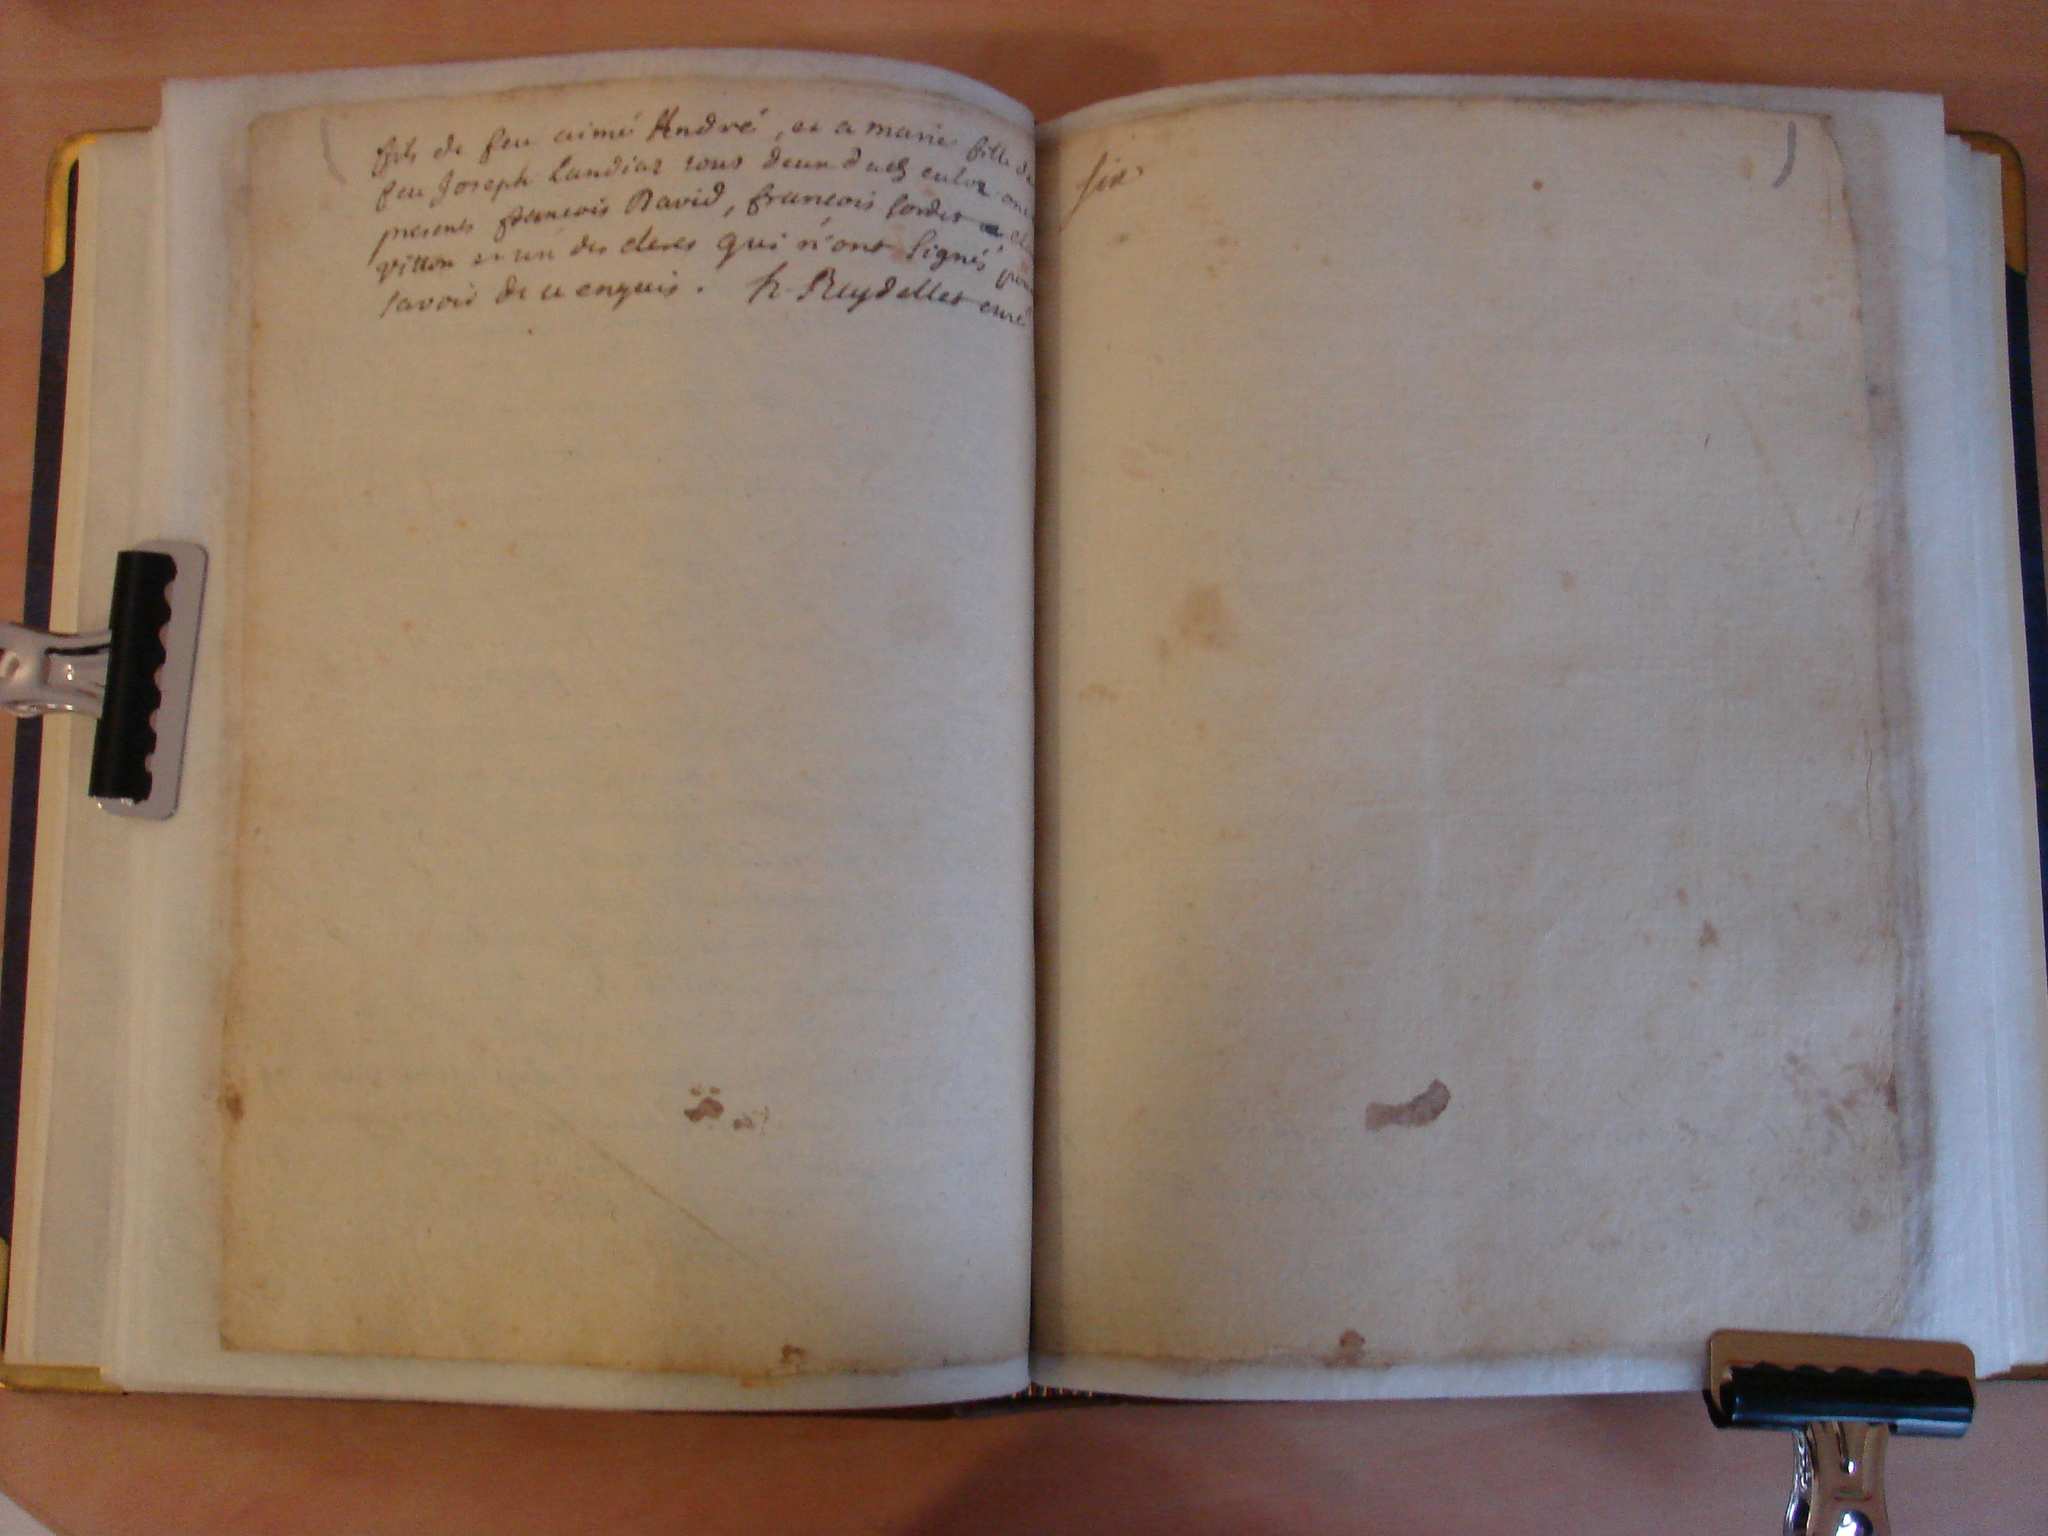 fils de feu aimé André, et a marie fille de
feu Joseph Candiaz tous deux d
presents françois David, françois
vitton et un des clercs qui n'ont signés pour
savoir de ce enquis. R. Reydellet curé
six